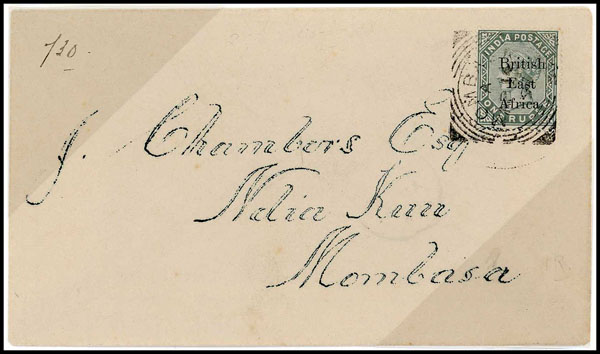 INDIA POSTAGE
British
East
Africa
J. Chambers Esq
Ndia Kuu
Mombasa